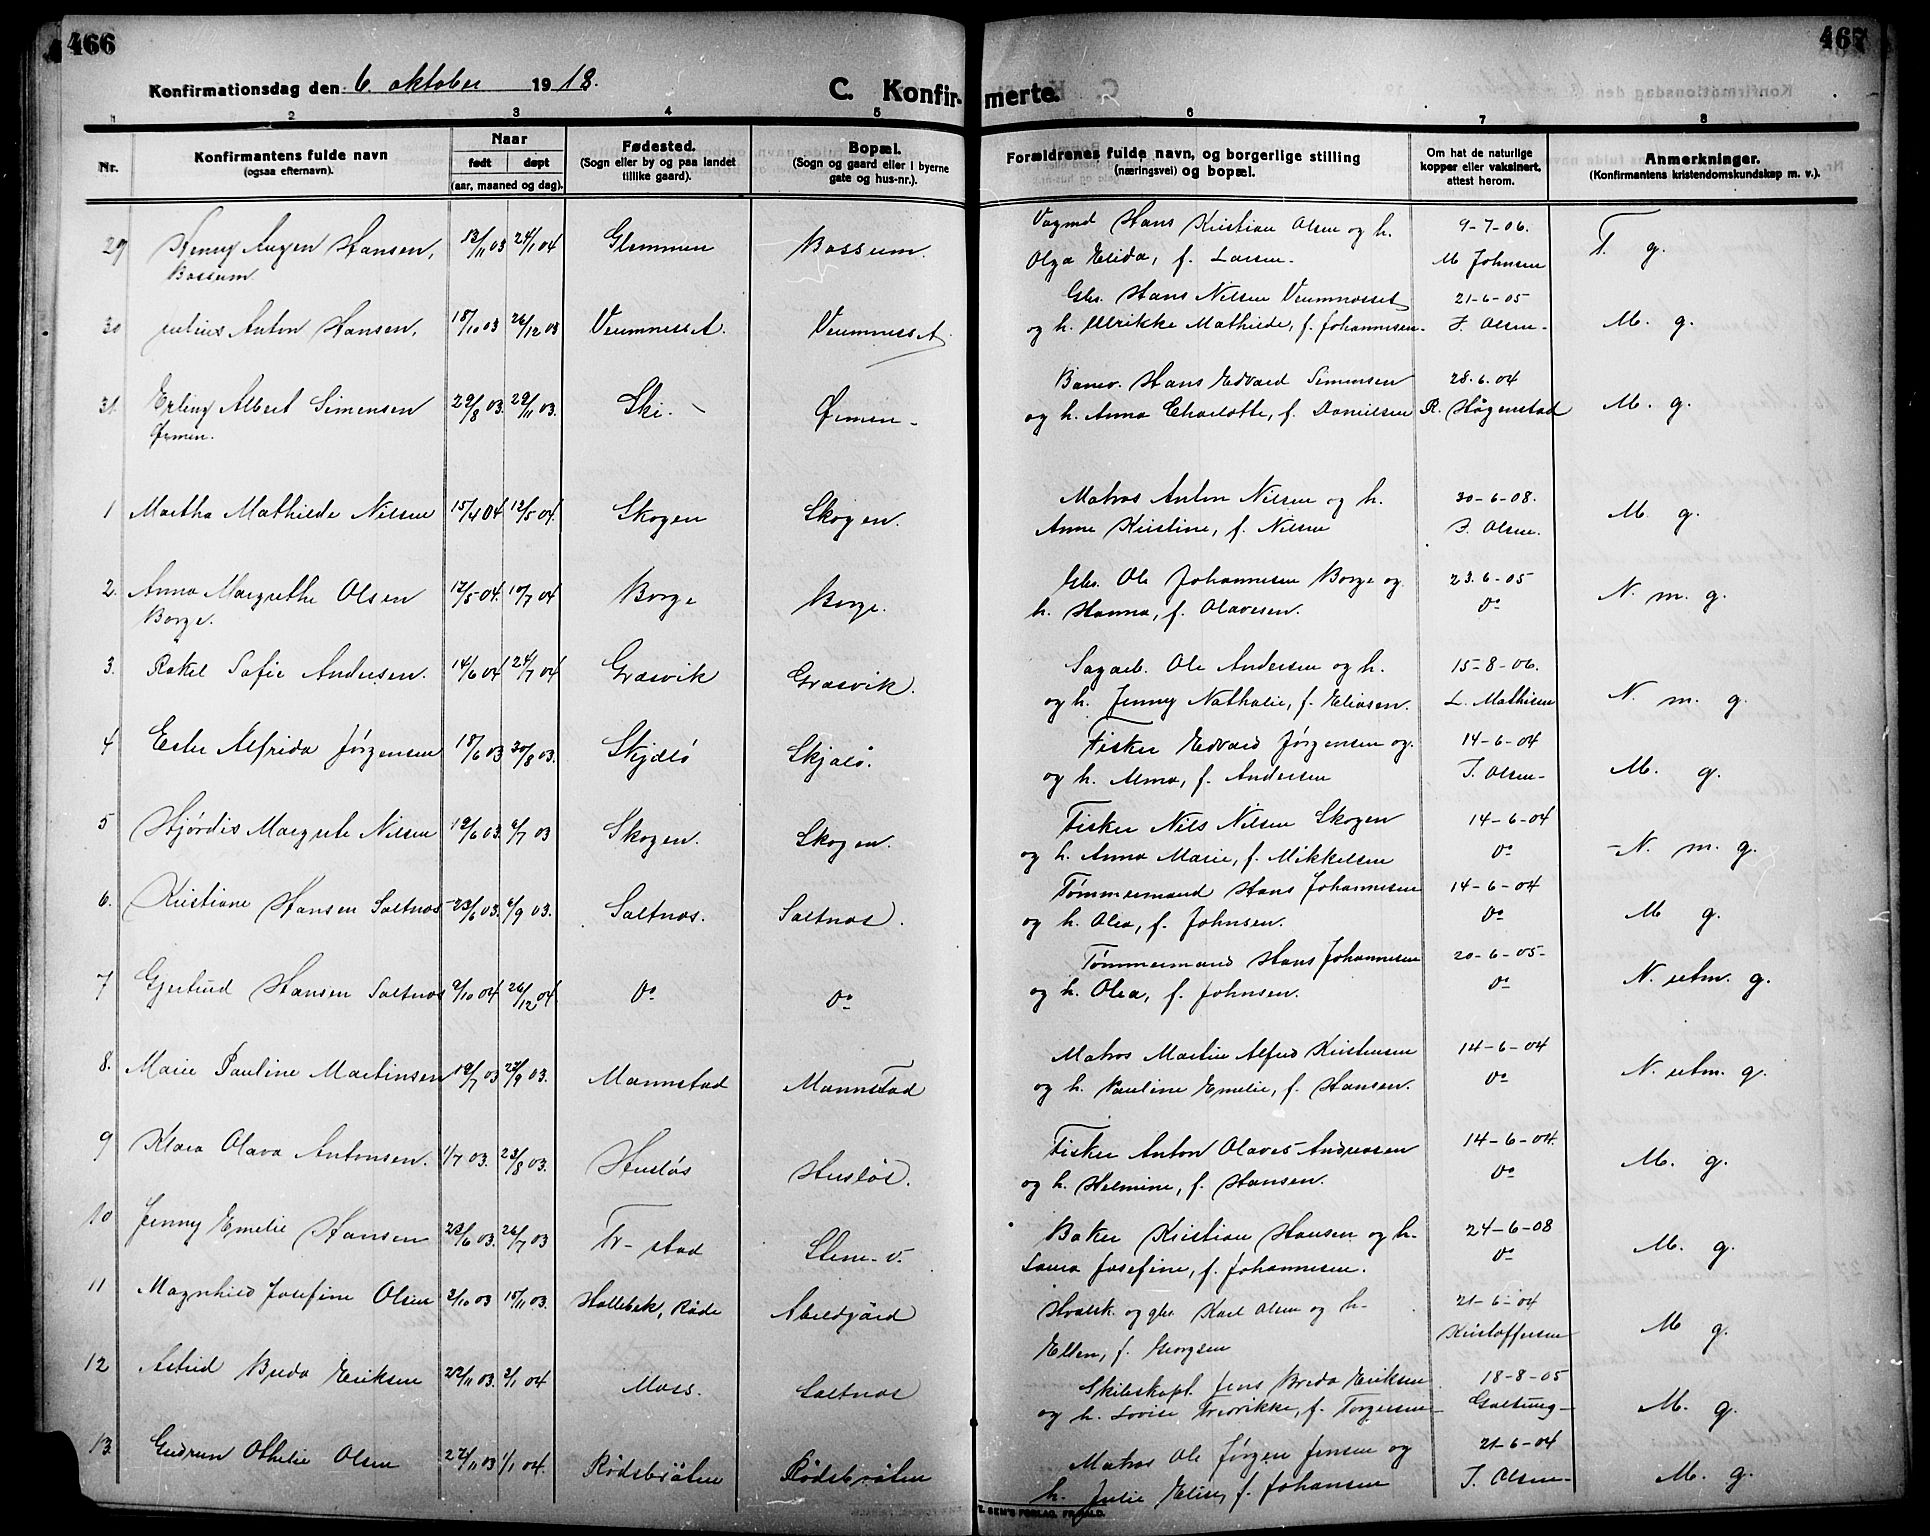 466
467
Konfirmationsdag den 6. oktober 1918.
C. Konfirmerte.
1 2 3 4 5 6 7 8
Nr.
Konfirmantens fulde navn
(ogsaa efternavn).
Naar
født
døpt
(aar, maaned og dag).
Fødested.
(Sogn eller by og paa landet
tillike gaard).
Bopæl.
(Sogn og gaard eller i byerne
gate og hus-nr.).
Forældrenes fulde navn, og borgerlige stilling
(næringsvei) og bopæl.
Om hat de naturlige
kopper eller vaksinert,
attest herom.
Anmerkninger.
(Konfirmantens kristendomskundskap m. v.).
29 Henny Hansen, 13/11 03 24/1 04 Glemmen Bossum. Hans Kristian Olsen og h. 9-7-06. T. g.
Bossum. Olga Elida, f. Larsen. M Johnsen
30 Julius Anton Hansen, 18/10 03 26/12 03 Veumnesset. Veumnesset. Gbr. Hans Nilsen Veumnesset 21-6-05 M. g.
og h. Ulrikke Mathilde, f. Johannesen. J. Olsen
31. Erling Albert Simensen 29/8 03. 29/11 03. Ski. Ørmen Banev. Hans Edvard Simensen 28.6.04 M. g.
Ørmen. og h. Anna Charlotte, f. Danielsen R. Högenstad
1 Martha Mathilde Nilsen 15/4 04 12/5 04. Skogen Skogen. Matros Anton Nilsen og h. 30-6-08. M. g.
Anne Kristine, f. Nilsen J. Olsen.
2. Anna Margrethe Olsen 12/5 04. 10/7 04 Borge Borge. Gbr. Ole Johannesen Borge og 23.6-05 N. m. g.
Borge. h. Hanna, f. Olavesen. Do
3. Rakel Sofie Andersen. 14/6 04 24/7 04 Græsvik Græsvik. Sagarb. Ole Andersen og h. 15-8-06. N. m. g.
og h. Jenny Nathalie, f. Eliasen. L. Mathisen
4 Ester Alfrida Jørgensen 18/6 03 30/8 03. Skjælø Skjælø. Fisker Edvard Jørgensen og 14-6-04 M. g.
og h. Alma, f. Andersen J. Olsen
5 Hjørdis Margrete Nilsen 19/6 03. 6/7 03 Skogen. Skogen. Fisker Nils Nilsen Skogen 14-6-04 N. m. g.
og h. Anna Marie, f. Mikkelsen Do
6. Kristiane Hansen Saltnes 23/6 03. 6/9 03. Saltnes. Saltnes. Tømmermand Hans Johannesen 14-6-04 M g.
og h. Olea, f. Johnsen. Do
7 Gjertrud Hansen Saltnes 2/10 04 26/12 04 Do Do Tømmermand Hans Johannesen 20-6-05- N. utm. g.
og h. Olea, f. Johnsen. Do
8. Marie Pauline Martinsen 19/7 03 27/9 03. Mannstad Mannstad Matros Martin Alfred Kristensen 14-6-04 N. utm. g.
og h. Pauline Emelie, f. Hansen. Do
9 Klara Olava Antonsen. 1/7 03. 23/8 03. Husløs Husløs. Fisker Anton Olaves Andreasen 14-6-04. M. g.
og h. Helmine, f. Hansen. Do
10 Jenny Emelie Hansen 23/6 03. 26/7 03 Fr-stad Elene-v. Baker Kristian Hansen og h. 24-6-08 M. g.
Laura Josefine, f. Johannesen. Do
11 Magnhild Josefine Olsen 2/10 03 15/11 03. Hallebæk, Råde Abildgård Hvalsk. og gbr Karl Olsen og h. 21-6-04 M g.
Ellen, f. Georgsen Kristoffersen
12 Astrid Breda Eriksen 22/11 03. 2/1 04 Moss. Saltnes Skibskapt. Jens Breda Eriksen 18-8-05 M. g.
og h. Lovise Fredrikke, f. Torgersen Galtung
13. Gudrun Othelie Olsen 27/11 03 1/1 04. Rødsbråten Rødsbråten Matros Ole Jørgen Jensen og 21-6-04 M. g.
h. Julie Elise, f. Johansen J. Olsen